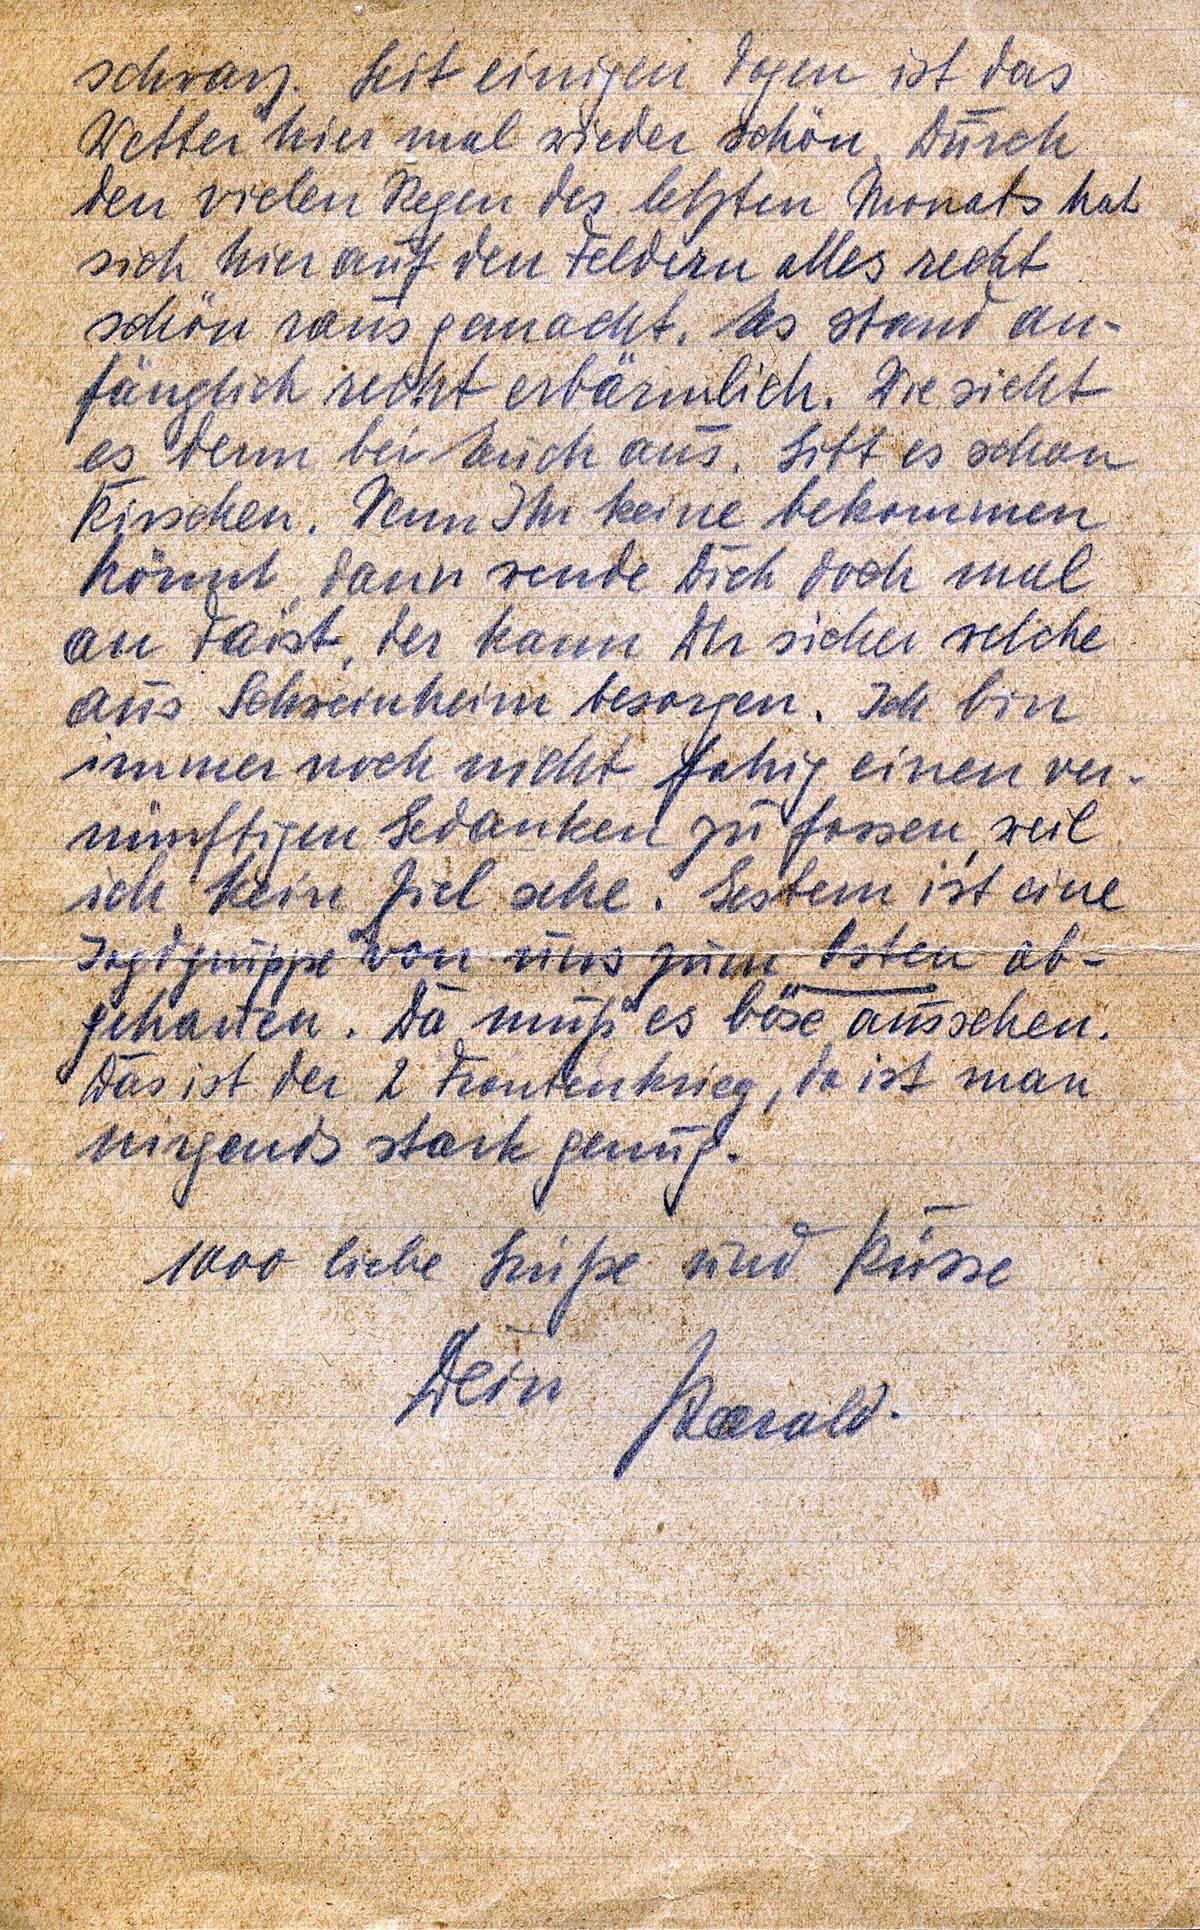 schwarz. Seit einigen Tagen ist das
Wetter hier mal wieder schön. Durch
den vielen Regen des letzten Monats hat
sich hier auf den Feldern alles recht
schön rausgemacht. Es stand an-
fänglich recht erbärmlich. Wie sieht
es denn bei Euch aus. Gibt es schon
Kirschen. Wenn Ihr keine bekommen
könnt, dann wende Dich doch mal
an Faist, der kann Dir sicher welche
aus Schweinheim besorgen. Ich bin
immer noch nicht fähig einen ver-
nünftigen Gedanken zu fassen, weil
ich kein Ziel sehe. Gestern ist eine
Jagdgruppe von uns zum Osten ab-
gehauen. Da muß es böse aussehen.
Das ist der 2 Frontenkrieg, da ist man
nirgends stark genug.
1000 liebe Grüße und Küsse
Dein Harald.